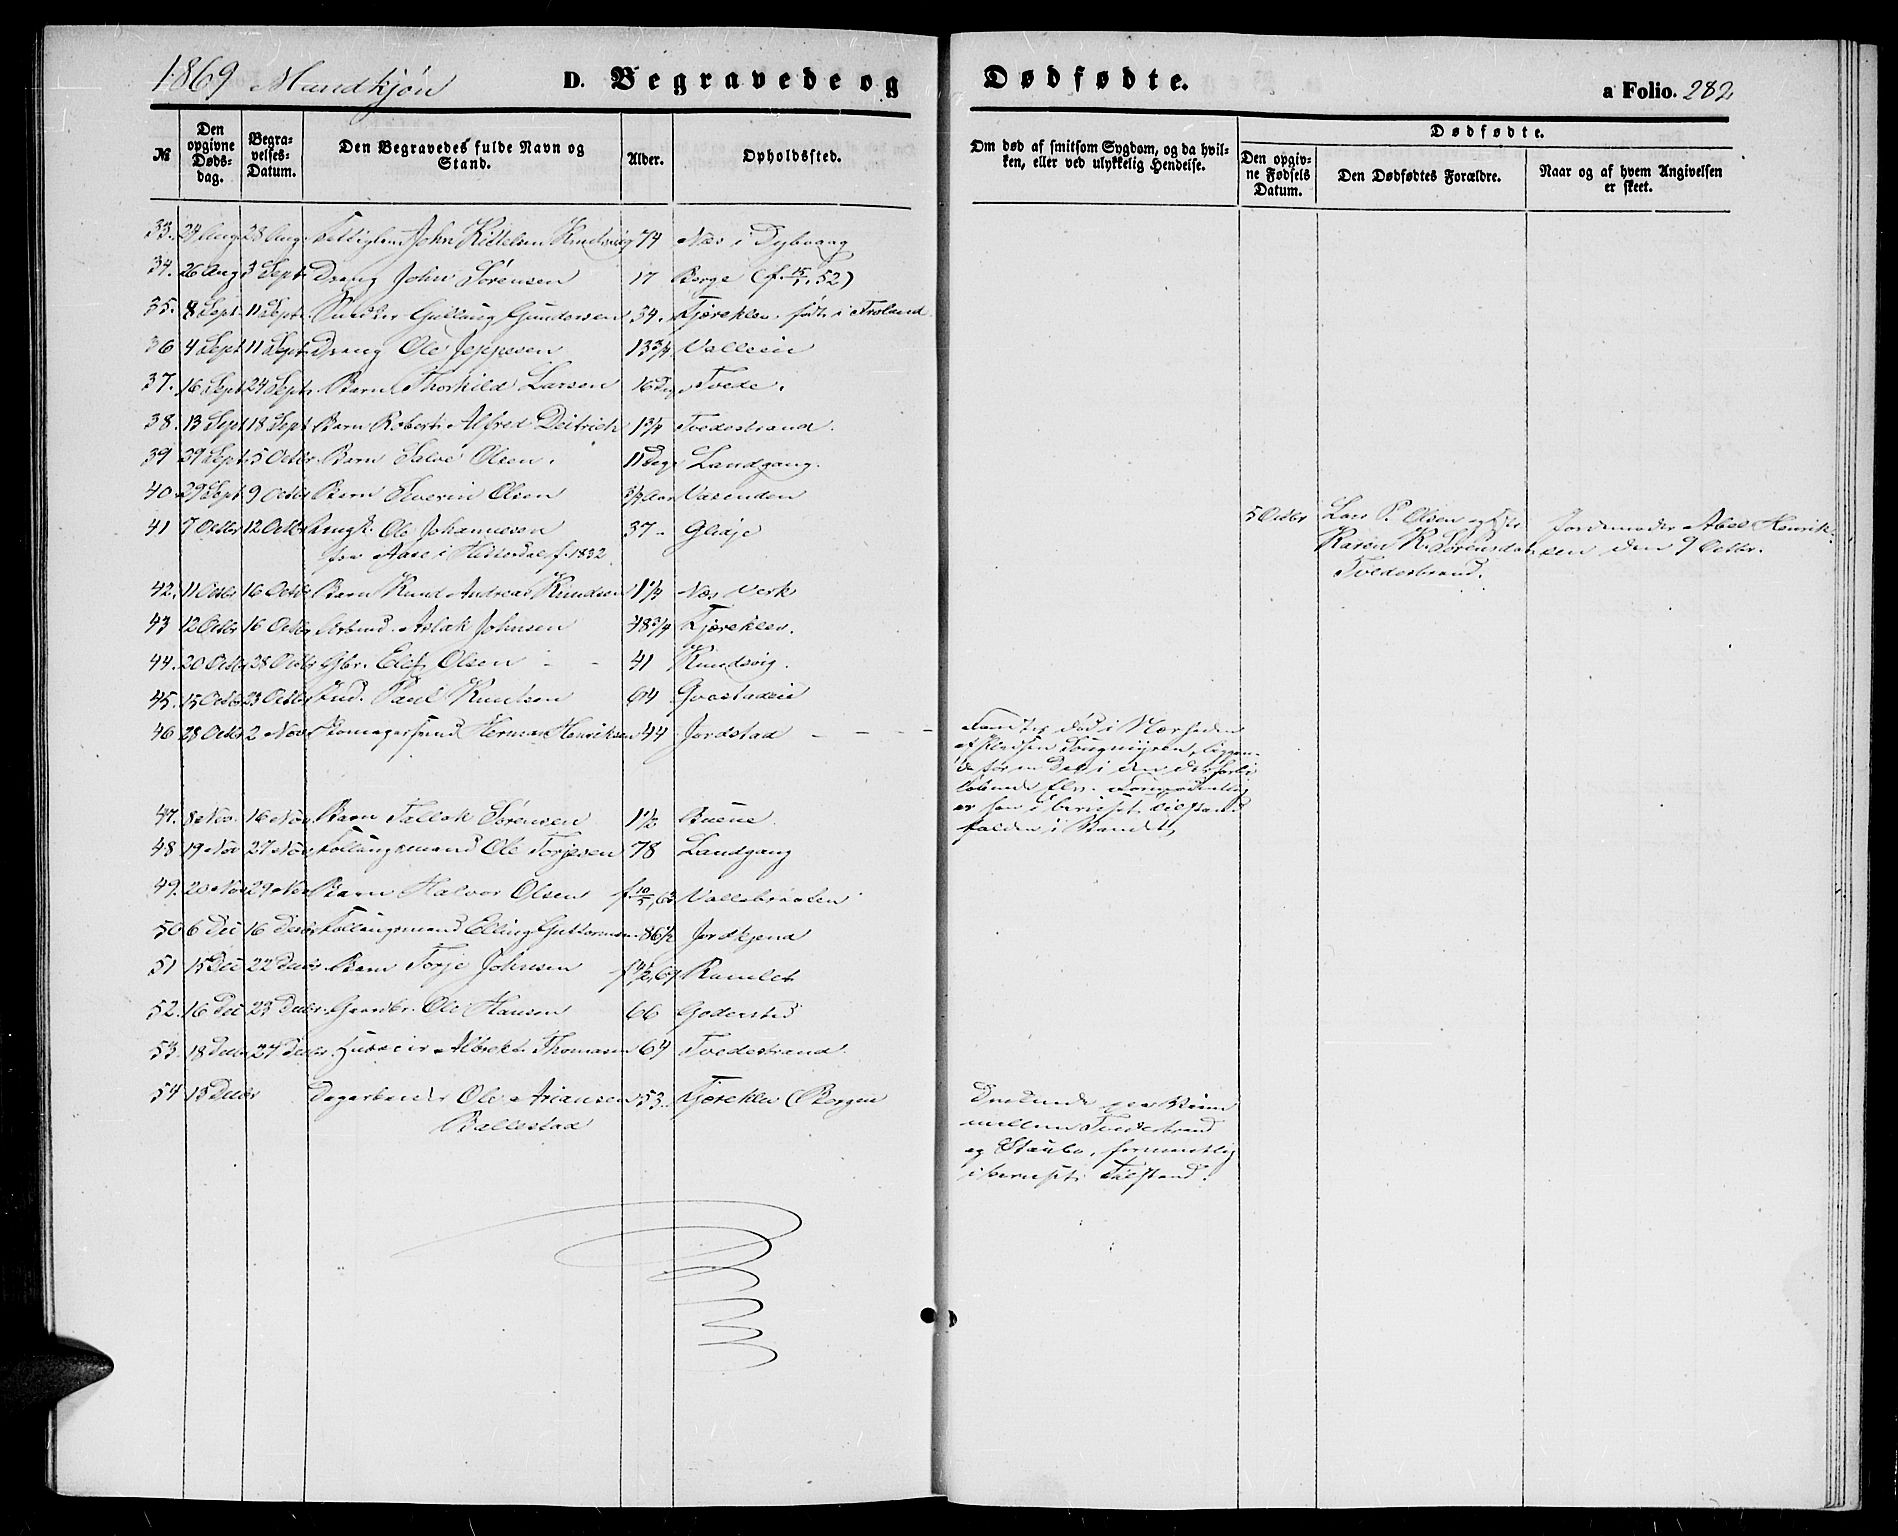 1869 Mandkjön D. Begravede og Dødfødte. a Folio. 282
№
Den opgivne Døds-dag.
Begra-velses-Datum.
Den Begravedes fulde Navn og Stand.
Alder.
Opholdssted.
Om død af smitsom Sygdom, og da hvil-ken, eller ved ulykkelig Hendelse.
Dødfødte.
Den opgiv-ne Fødsels Datum.
Den Dødfødtes Forældre.
Naar og af hvem Angivelsen er skeet.
33. 24 Aug 28 Aug John Kittelsen 74 Næs i Dybvaag
34. 26 Aug 3 Sept Dreng John Sørensen 17 Berge (f. 15/1. 52)
35. 8 Sept 11 Sept Gullaug Gundersen 34. Fjæreklev. født i Froland
36 4 Sept 11 Sept Dreng Ole Jeppesen 13 3/4 Valleeie
37. 16 Sept 24 Sept Barn Thorkild Larsen 16 Dage Tvede.
38. 13 Sept 18 Sept Barn Robert Alfred Deitrich 1 3/4 Tvedestrand.
39 29 Sept 5 Octbr Barn Salve Olsen. 11 Dage Landgang.
40. 29 Sept 9 Octbr Barn Severin Olsen 3/4 Aar Væsenden
41 7 Octbr 12 Octbr Ungk. Ole Johannesen 37 Glaaje
fra Aase i Hitterdal f. 1832
5 Octbr Lars P. Olsen og
Karen K. Sørensdatter
Tvedestrand.
Jordemoder Abel Henrik-
sen den 9 Octbr.
42. 11 Octbr 16 Octbr Barn Knud Andreas Knudsen 1 1/4 Næs Verk
43 12 Octbr 16 Octbr Aslak Johnsen 48 3/4 Fjæreklev.
44. 20 Octbr 28 Octbr Gbr. Elef Olsen 41 Knudsvig.
45. 15 Octbr 23 Octbr Ind. Paul Knutsen 64 Goastadeie
46 28 Octbr 2 Nov Herman Henriksen 44 Jordstad
Fandtes død i Nærheden
af Pladsen liggen-
de for en Deel i den der forbi
løbende Elv. Formodentlig
er han i beruset Tilstand
falden i Vandet,
47. 8 Nov. 16 Nov. Barn Tallak Sørensen 1 1/2 Buene
48 19 Nov 27 Nov Follaugsmand Ole Torjesen 78 Landgang
49. 20 Nov 29 Nov Barn Halvor Olsen f 10/5, 63 Vallebraaten
50 6 Dec 16 Decbr Follaugsmand Elling Guttormsen 86 1/2 Jordkjend
51 15 Dec 22 Decbr. Barn Torje Johnsen 67 Ramlet
52. 16 Dec 23 Decbr. Gaardbr. Ole Hansen 66 Goderstad
53. 18 Decbr 24 Decbr. Huseier Albrekt Thomasen 64 Tvedestrand.
54 13 Decbr Dagarbeider Ole Ariansen 53. Fjæreklev (Bergen
Ballestad
Druknede paa Veien
mellem Tvedestrand
og Staubø, formentlig
i beruset Tilstand.